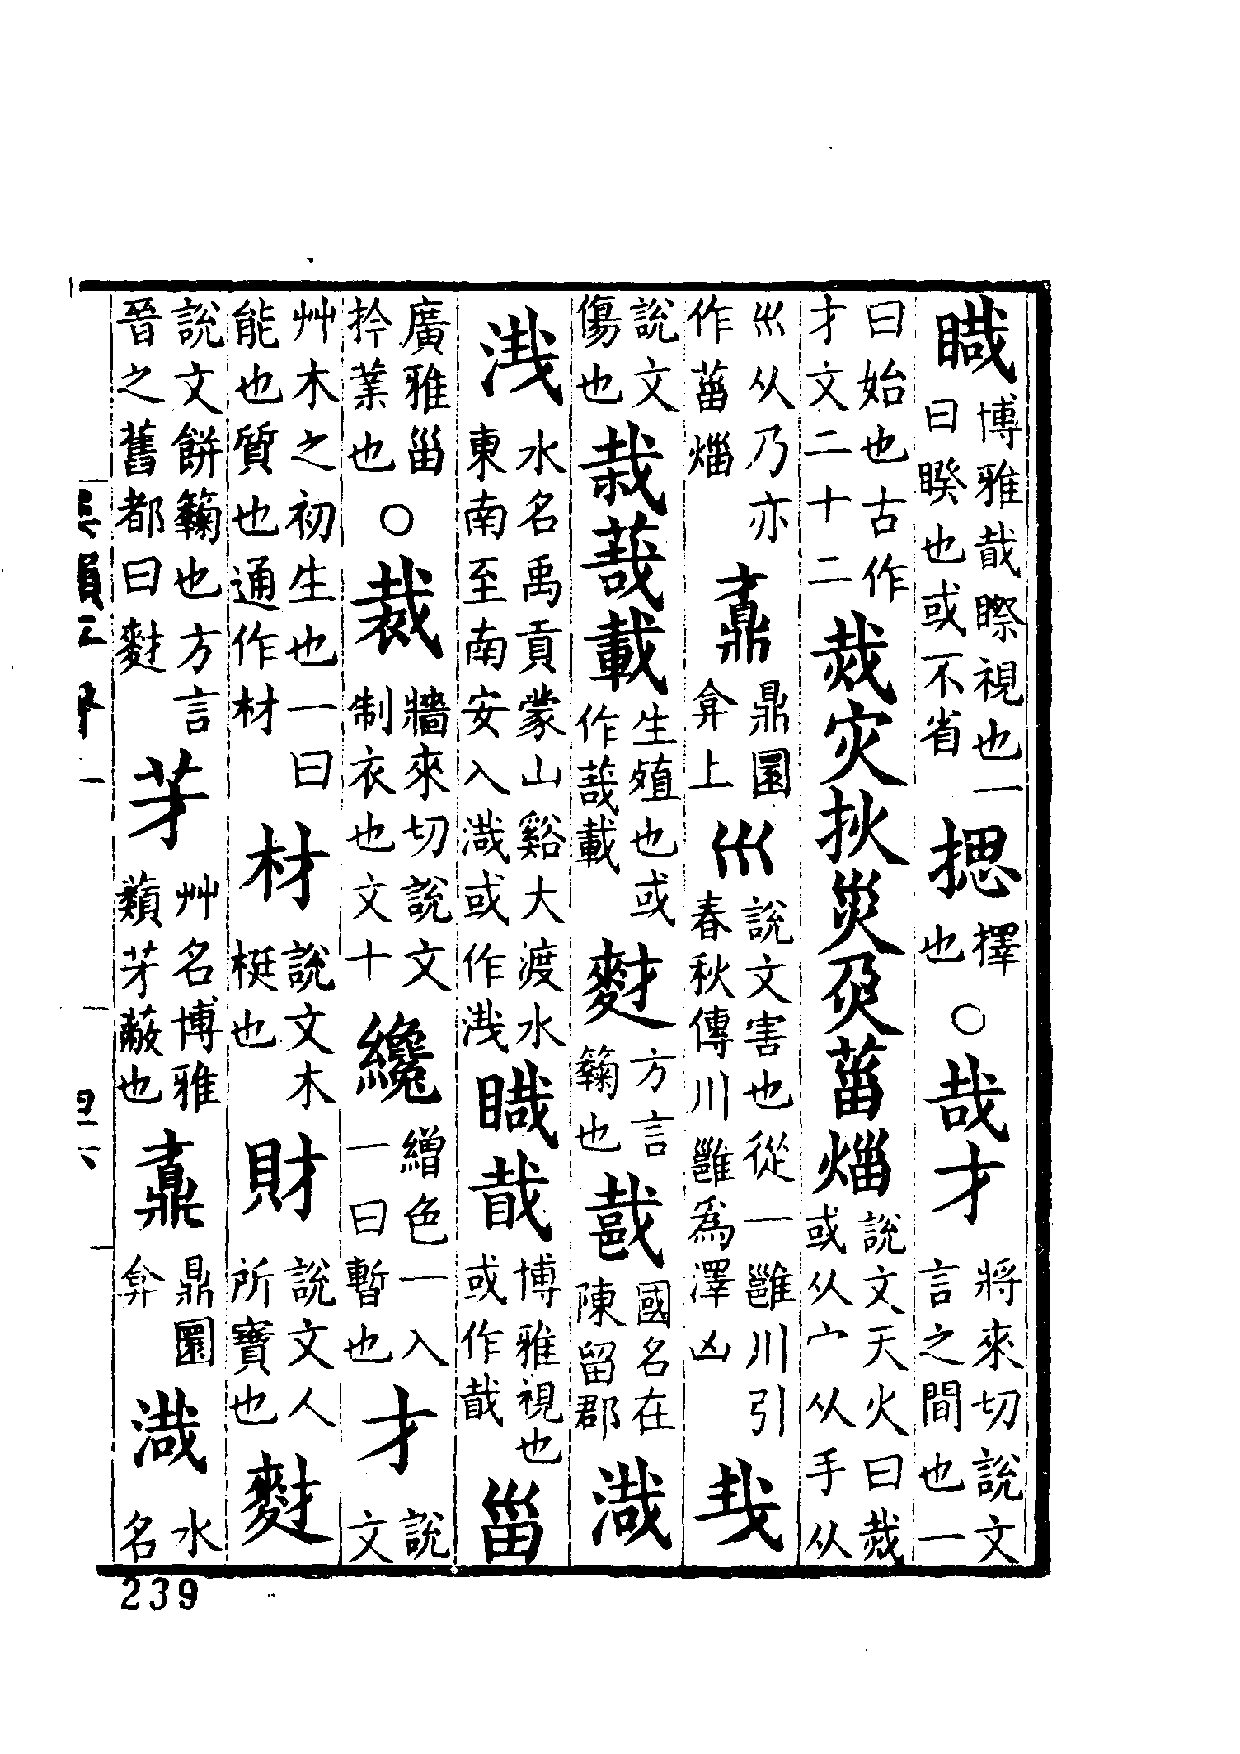 博雅睵視也一曰睽也或不省揌擇也○哉才將來切說文言之間也一
曰始也古作才文二十二烖灾扻災菑說文天火曰烖或从宀从手从
巛从乃亦作菑鼒鼎圜弇上巛說文害也從一雝川引春秋傳川雝爲澤凶𢦏
說文傷也栽䔂載生殖也或作䔂載䴭方言麴也國名在陳留郡溨
渽水名禹貢蒙山谿大渡水東南至南安入溨或作渽博雅視也或作甾
廣雅甾業也○裁牆來切說文制衣也文十纔繒色一入一曰暫也才說文
艸木之初生也一曰能也質也通作材材說文木梃也財說文人所寶也䴭
說文餅麴也方言晉之舊都曰䴭艸名博雅蔽也鼒鼎圜弇溨水名
239